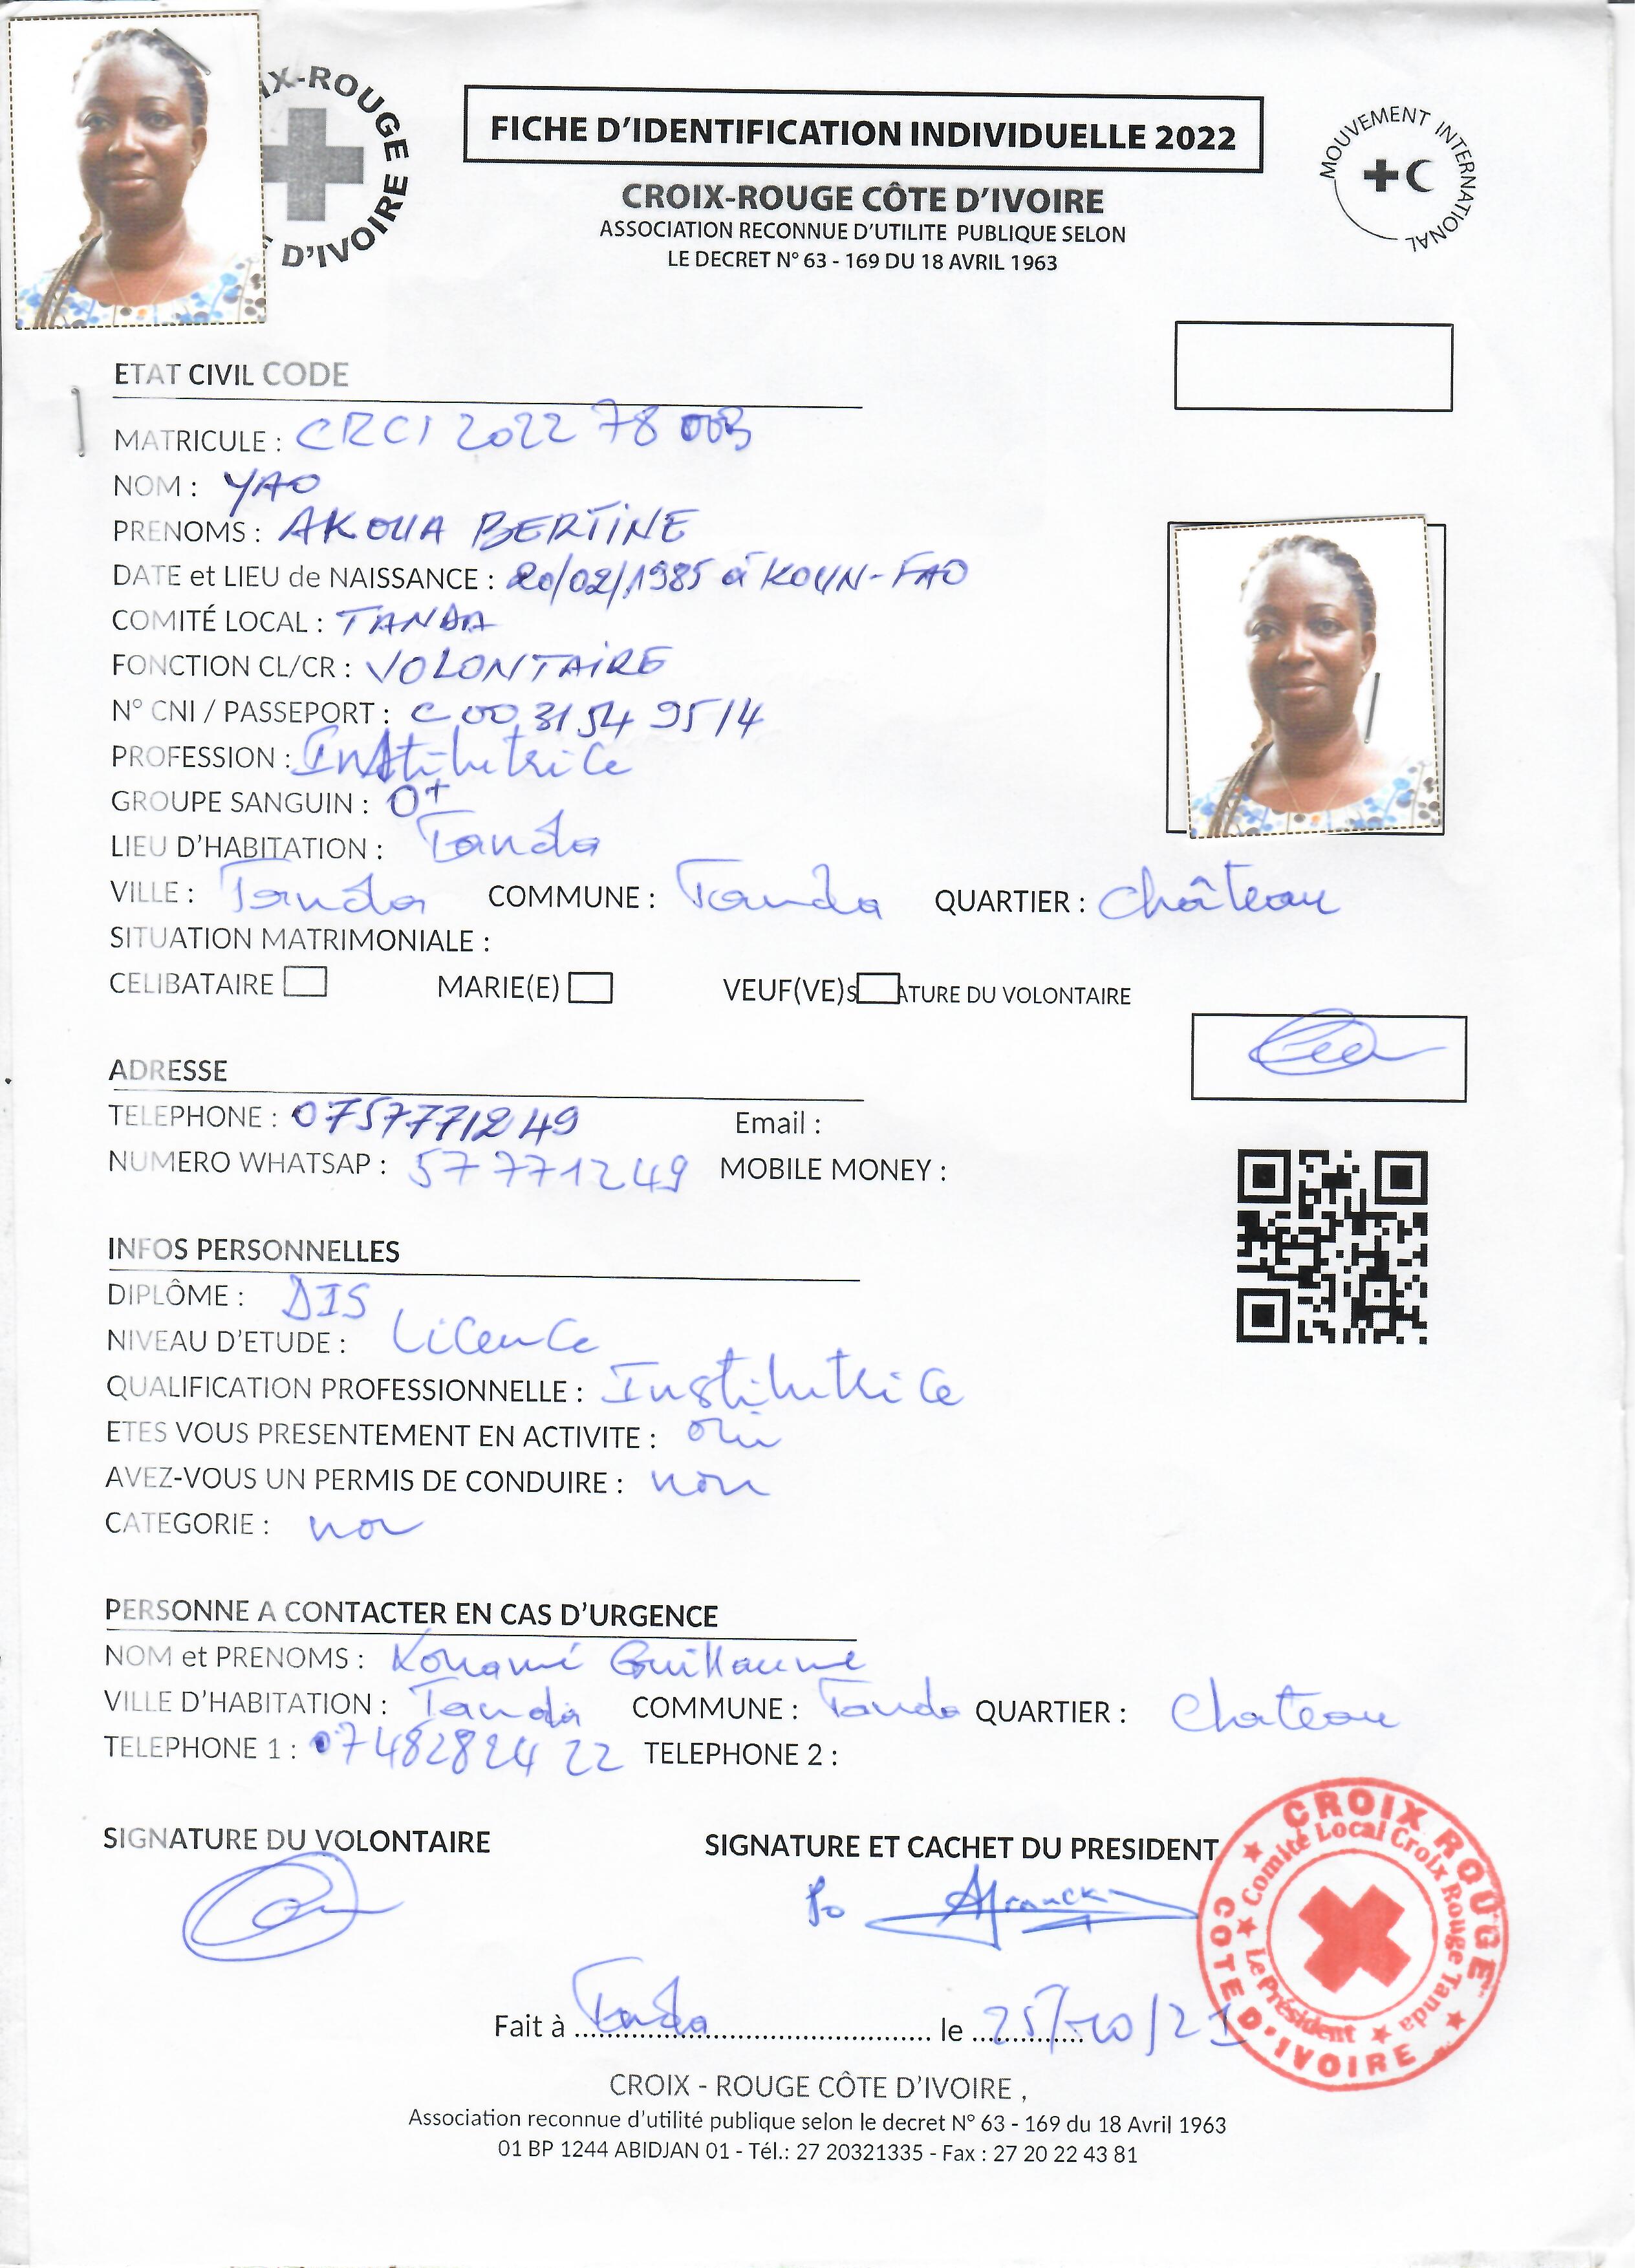 IX-ROUGE
D'IVOIRE
FICHE D'IDENTIFICATION INDIVIDUELLE 2022
CROIX-ROUGE CÔTE D'IVOIRE
ASSOCIATION RECONNUE D'UTILITE PUBLIQUE SELON
LE DECRET N° 63 - 169 DU 18 AVRIL 1963
MOUVEMENT INTERNATIONAL
ETAT CIVIL CODE
MATRICULE : CRCI 2022 78
NOM : YAO
PRENOMS : AKOUA BERTINE
DATE et LIEU de NAISSANCE : 20/02/1985 à KOUN-FAO
COMITÉ LOCAL : TANDA
FONCTION CL/CR : VOLONTAIRE
N° CNI / PASSEPORT : C 00 3154 9514
PROFESSION : Institutrice
GROUPE SANGUIN : O+
LIEU D'HABITATION : Tanda
VILLE : Tanda COMMUNE : Tanda QUARTIER : Château
SITUATION MATRIMONIALE :
CELIBATAIRE MARIE(E) VEUF(VE) S ATURE DU VOLONTAIRE
ADRESSE
TELEPHONE : 0757771249 Email :
NUMERO WHATSAP : 57771249 MOBILE MONEY :
INFOS PERSONNELLES
DIPLÔME : DIS
NIVEAU D'ETUDE : Licence
QUALIFICATION PROFESSIONNELLE : Institutrice
ETES VOUS PRESENTEMENT EN ACTIVITE : oui
AVEZ-VOUS UN PERMIS DE CONDUIRE : non
CATEGORIE : non
PERSONNE A CONTACTER EN CAS D'URGENCE
NOM et PRENOMS : Kouamé Guillaume
VILLE D'HABITATION : Tanda COMMUNE : Tanda QUARTIER : Chateau
TELEPHONE 1 : 0748282422 TELEPHONE 2 :
SIGNATURE DU VOLONTAIRE SIGNATURE ET CACHET DU PRESIDENT
Po
CROIX ROUGE
COTE D'IVOIRE
Comité Local Croix Rouge Tanda
Le Président
Fait à Tanda le 25/10/21
CROIX - ROUGE CÔTE D'IVOIRE ,
Association reconnue d'utilité publique selon le decret N° 63 - 169 du 18 Avril 1963
01 BP 1244 ABIDJAN 01 - Tél.: 27 20321335 - Fax : 27 20 22 43 81